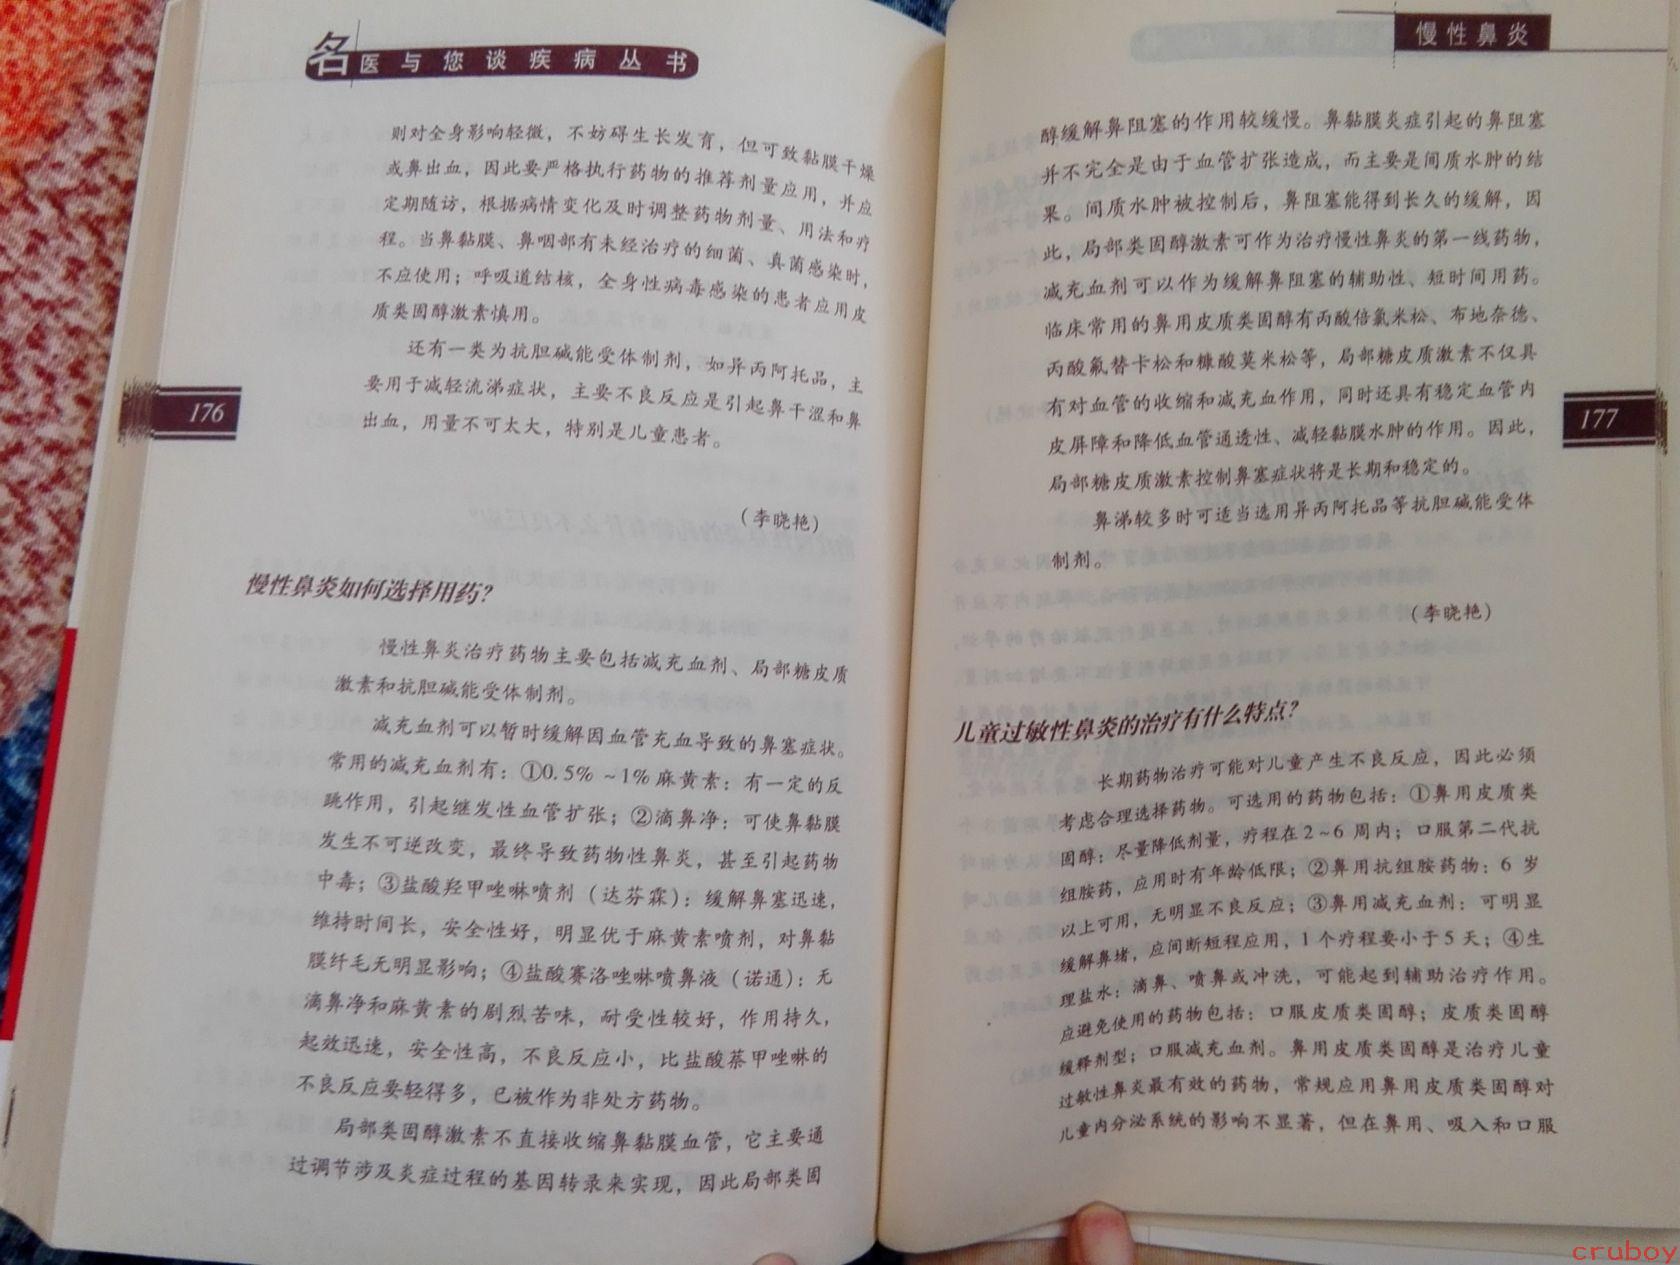 名医与您谈疾病丛书
则对全身影响轻微，不妨碍生长发育，但可致黏膜干燥
或鼻出血，因此要严格执行药物的推荐剂量应用，并应
定期随访，根据病情变化及时调整药物剂量、用法和疗
程。当鼻黏膜、鼻咽部有未经治疗的细菌、真菌感染时，
不应使用；呼吸道结核，全身性病毒感染的患者应用皮
质类固醇激素慎用。
还有一类为抗胆碱能受体制剂，如异丙阿托品，主
要用于减轻流涕症状，主要不良反应是引起鼻干涩和鼻
出血，用量不可太大，特别是儿童患者。
176
（李晓艳）
慢性鼻炎如何选择用药？
慢性鼻炎治疗药物主要包括减充血剂、局部糖皮质
激素和抗胆碱能受体制剂。
减充血剂可以暂时缓解因血管充血导致的鼻塞症状。
常用的减充血剂有：①0.5% ~1% 麻黄素：有一定的反
跳作用，引起继发性血管扩张；②滴鼻净：可使鼻黏膜
发生不可逆改变，最终导致药物性鼻炎，甚至引起药物
中毒；③盐酸羟甲唑啉喷剂（达芬霖）：缓解鼻塞迅速，
维持时间长，安全性好，明显优于麻黄素喷剂，对鼻黏
膜纤毛无明显影响；④盐酸赛洛唑啉喷鼻液（诺通）：无
滴鼻净和麻黄素的剧烈苦味，耐受性较好，作用持久，
起效迅速，安全性高，不良反应小，比盐酸萘甲唑啉的
不良反应要轻得多，已被作为非处方药物。
局部类固醇激素不直接收缩鼻黏膜血管，它主要通
过调节涉及炎症过程的基因转录来实现，因此局部类固
慢性鼻炎
醇缓解鼻阻塞的作用较缓慢。鼻黏膜炎症引起的鼻阻塞
并不完全是由于血管扩张造成，而主要是间质水肿的结
果。间质水肿被控制后，鼻阻塞能得到长久的缓解，因
此，局部类固醇激素可作为治疗慢性鼻炎的第一线药物，
减充血剂可以作为缓解鼻阻塞的辅助性、短时间用药。
临床常用的鼻用皮质类固醇有丙酸倍氯米松、布地奈德、
丙酸氟替卡松和糠酸莫米松等，局部糖皮质激素不仅具
有对血管的收缩和减充血作用，同时还具有稳定血管内
皮屏障和降低血管通透性、减轻黏膜水肿的作用。因此，
局部糖皮质激素控制鼻塞症状将是长期和稳定的。
鼻涕较多时可适当选用异丙阿托品等抗胆碱能受体
制剂。
177
（李晓艳）
儿童过敏性鼻炎的治疗有什么特点？
长期药物治疗可能对儿童产生不良反应，因此必须
考虑合理选择药物。可选用的药物包括：①鼻用皮质类
固醇：尽量降低剂量，疗程在 2~6 周内；口服第二代抗
组胺药，应用时有年龄低限；②鼻用抗组胺药物：6 岁
以上可用，无明显不良反应；③鼻用减充血剂：可明显
缓解鼻堵，应间断短程应用，1 个疗程要小于 5 天；④生
理盐水：滴鼻、喷鼻或冲洗，可能起到辅助治疗作用。
应避免使用的药物包括：口服皮质类固醇；皮质类固醇
缓释剂型；口服减充血剂。鼻用皮质类固醇是治疗儿童
过敏性鼻炎最有效的药物，常规应用鼻用皮质类固醇对
儿童内分泌系统的影响不显著，但在鼻用、吸入和口服
cruboy